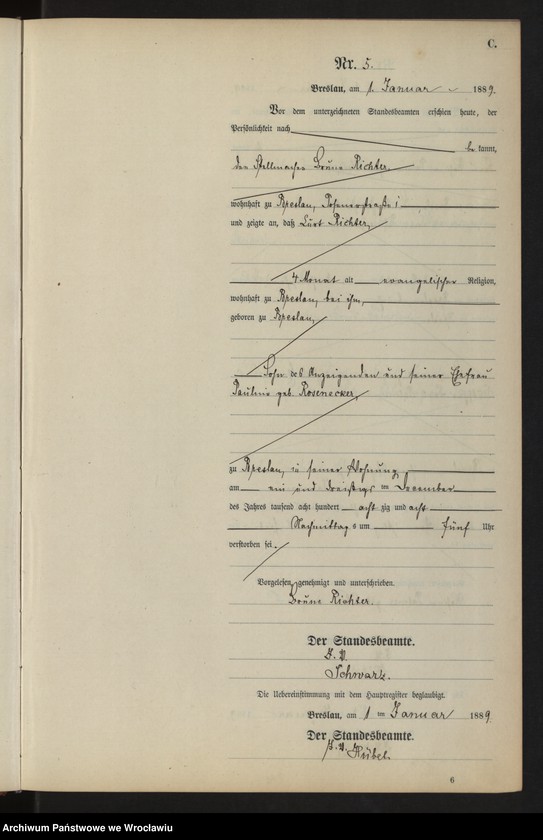 C.
Nr. 5.
Breslau, am 1. Januar 1889.
Vor dem unterzeichneten Standesbeamten erschien heute, der
Persönlichkeit nach
be kannt,
der Stellmacher Bruno Richter,
wohnhaft zu Breslau, Posenerstraße 1
und zeigte an, daß Curt Richter,
4 Monat alt evangelischer Religion,
wohnhaft zu Breslau, bei ihm,
geboren zu Breslau,
Sohn des Anzeigenden und seiner Ehefrau
Pauline geb. Rosenecker,
zu Breslau, in seiner Wohnung,
am ein und dreißigs ten December
des Jahres tausend acht hundert acht zig und acht
Nachmittag s um fünf Uhr
verstorben sei.
Vorgelesen, genehmigt und unterschrieben.
Bruno Richter.
Der Standesbeamte.
I. V.
Schwarz.
Die Uebereinstimmung mit dem Hauptregister beglaubigt.
Breslau, am 1 ten Januar 1889.
Der Standesbeamte.
I. V. Kübel.
6
Archiwum Państwowe we Wrocławiu